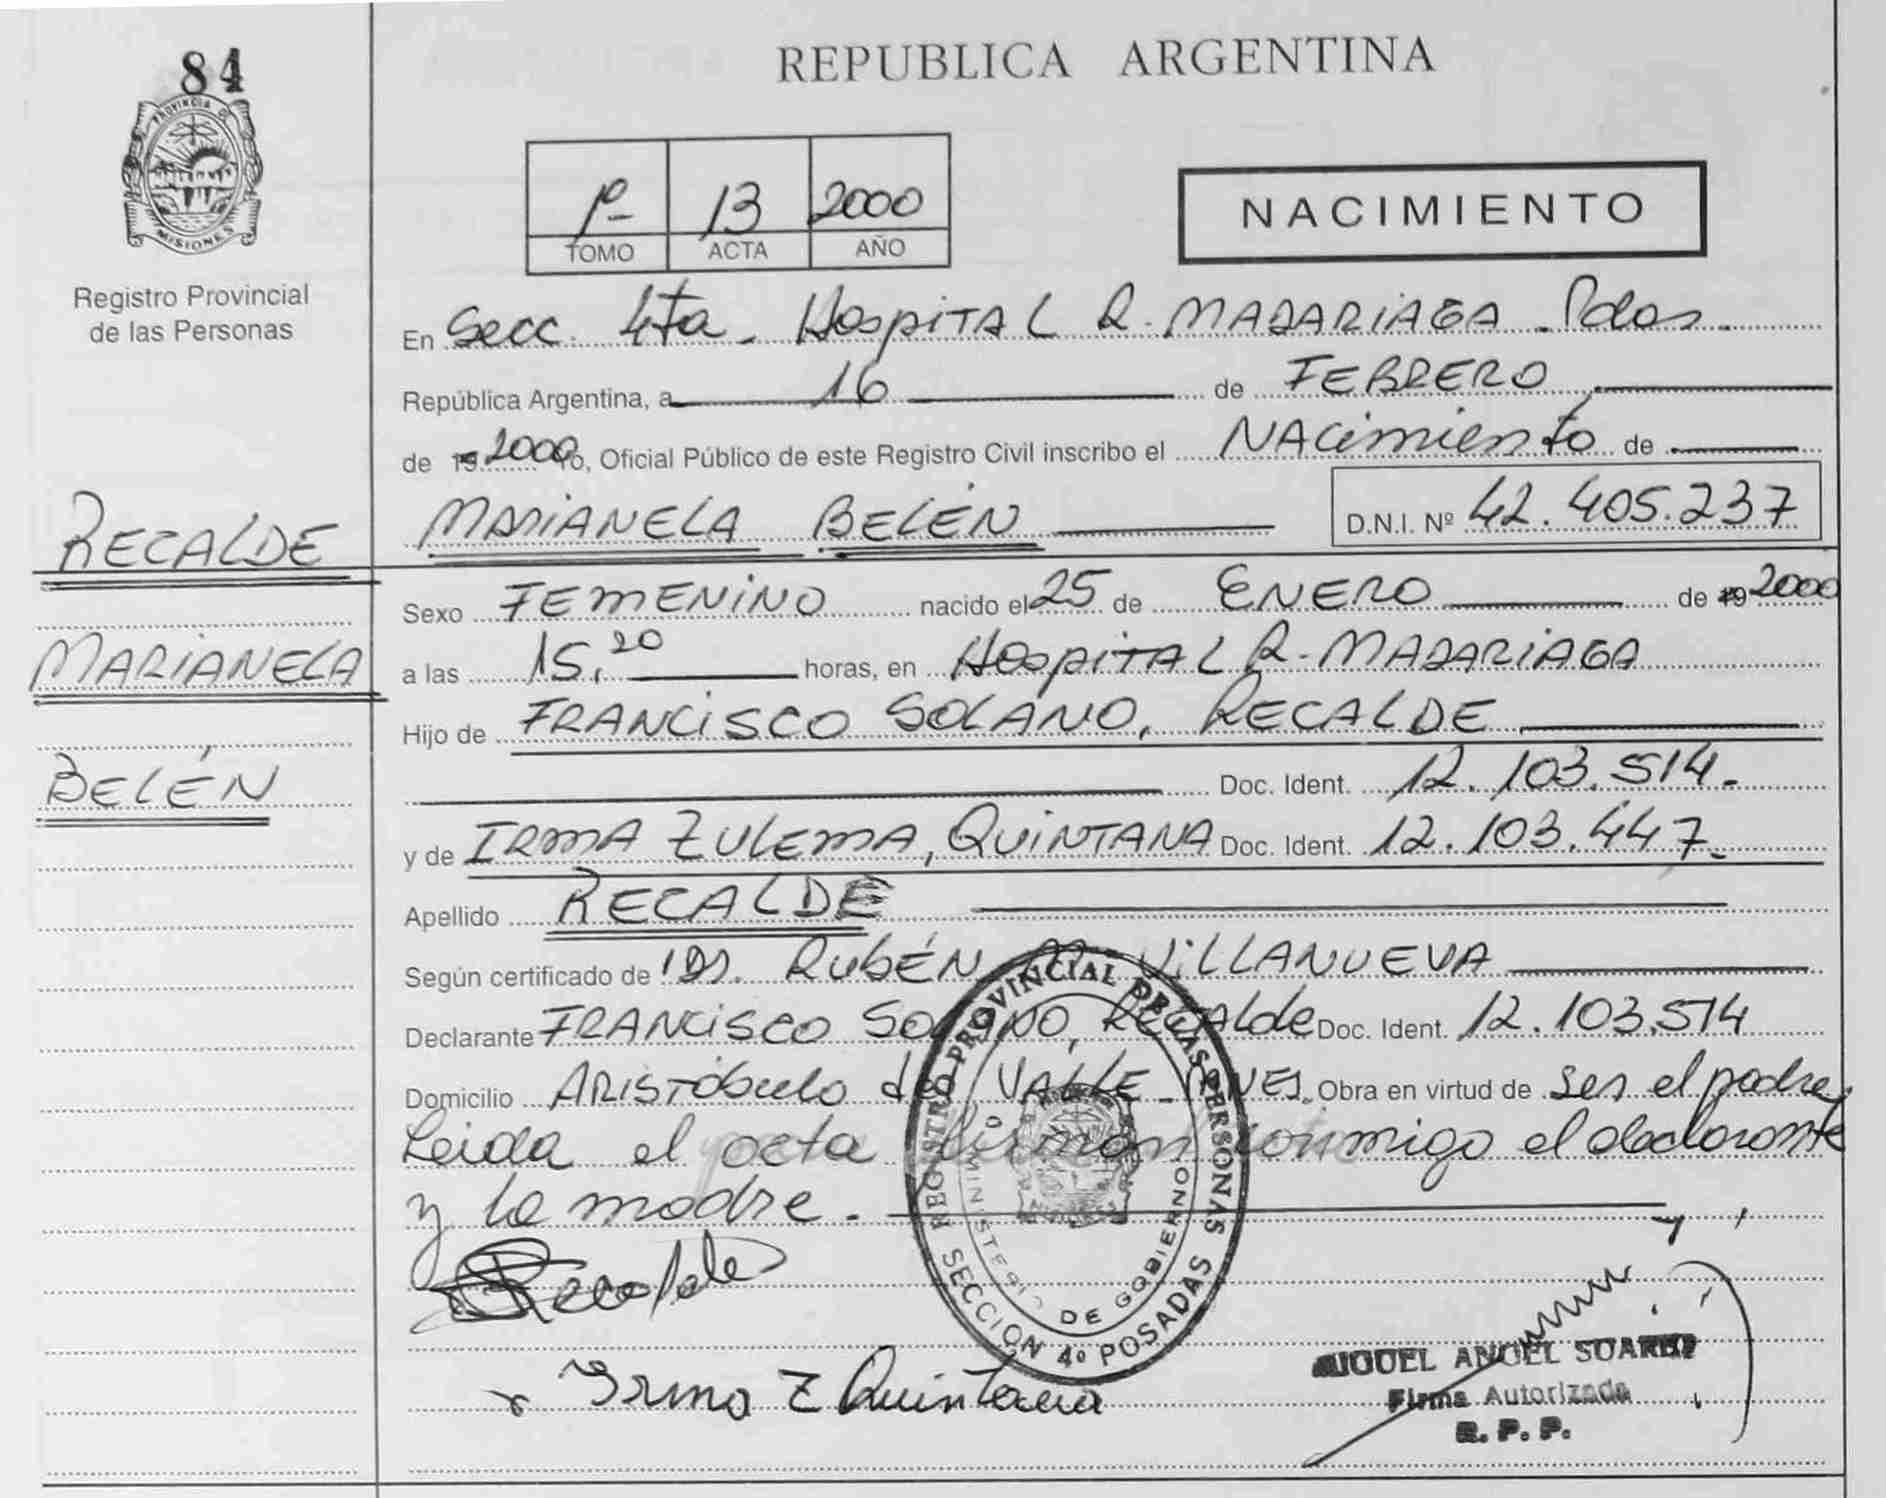 84
REPUBLICA ARGENTINA
PROVINCIA DE
MISIONES
Registro Provincial
de las Personas
1º 13 2000
TOMO ACTA AÑO
NACIMIENTO
En Secc. 4ta. Hospital R. MADARIAGA. Pdas.
República Argentina, a 16 de FEBRERO
de 19 2000 Yo, Oficial Público de este Registro Civil inscribo el NAcimiento de
RECALDE
MARIANELA BELÉN D.N.I. Nº 42.405.237
Sexo FEMENINO nacido el 25 de ENERO de 19 2000
MARIANELA
a las 15,20 horas, en HospiTAL R. MADARIAGA
Hijo de FRANCISCO SOLANO, RECALDE
BELÉN
Doc. Ident. 12.103.514.
y de IRMA ZULEMA, QUINTANA Doc. Ident. 12.103.447.
Apellido RECALDE
Según certificado de Dr. RUBÉN M. VILLANUEVA
Declarante FRANCISCO SOLANO, RECALde Doc. Ident. 12.103.514
Domicilio ARISTÓbulo del VALLE Mnes. Obra en virtud de ser el padre,
Leida el acta firman conmigo el declarante
y la madre.
REGISTRO PROVINCIAL DE LAS PERSONAS
MINISTERIO DE GOBIERNO
SECCION 4º POSADAS
Recalde
Irma Z Quintana
MIGUEL ANGEL SUAREZ
Firma Autorizada
R. P. P.